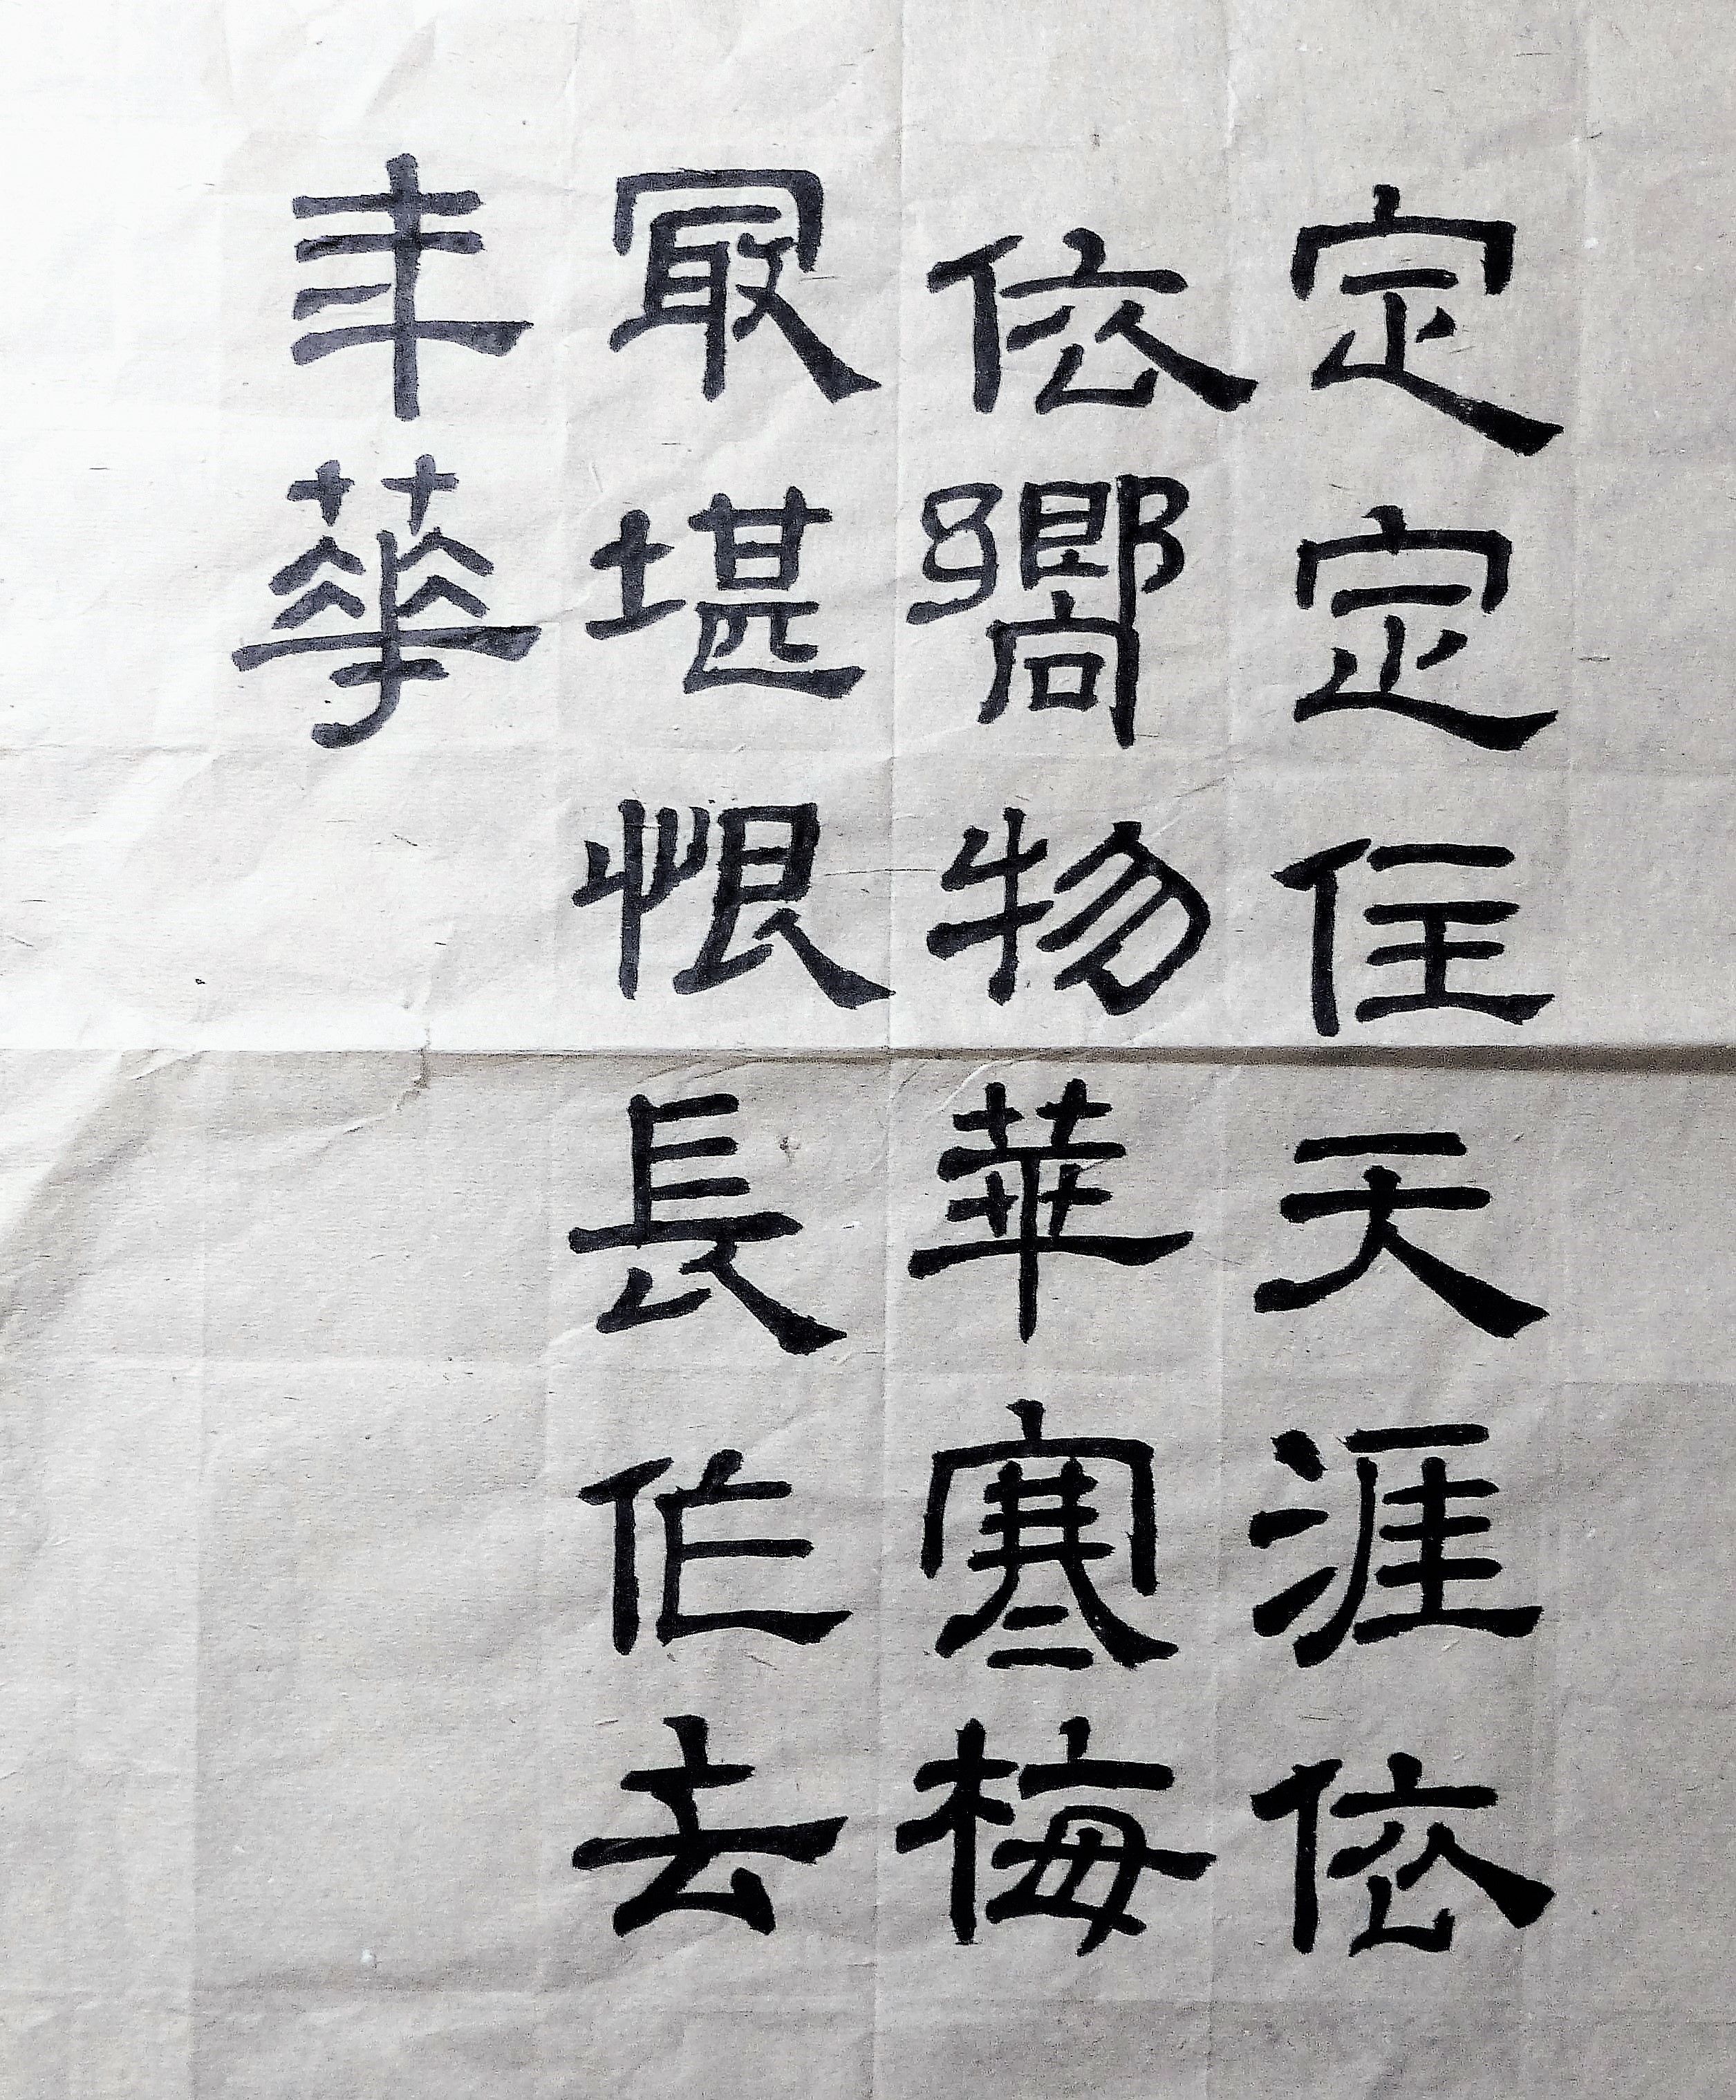 定定住天涯依
依嚮物華寒梅
最堪恨長作去
年華